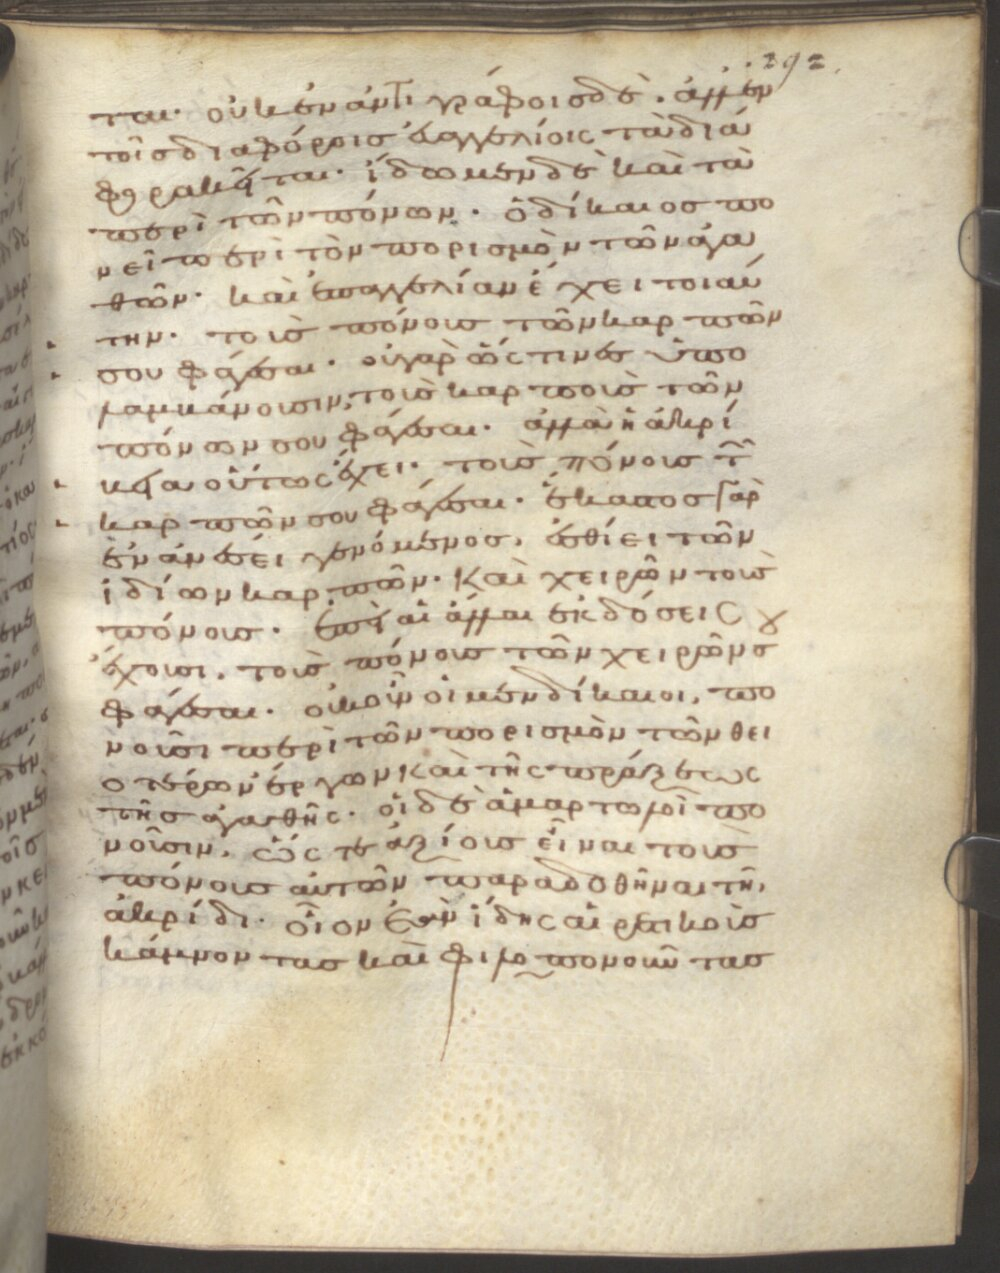 292
ται· οὐκ ἐν ἀντιγράφοις δὲ. ἀλλ' ἐν
τοῖς διαφόροις εὐαγγελίοις τὰ διά
φορα κεῖται· ἴδωμεν δὲ καὶ τὰ
περὶ τῶν πόνων· ὁ δίκαιος πο
νεῖ περὶ τὸν πορισμὸν τῶν ἀγα
θῶν· καὶ ἐπαγγελίαν ἔχει τοιαύ
την· τοὺς πόνους τῶν καρπῶν
σου φάγεσαι· οὐ γὰρ ὥς τινες ὑπο
λαμβάνουσιν, τοὺς καρποὺς τῶν
πόνων σου φάγεσαι· ἀλλὰ ἡ ἀκρί
βεια οὕτως ἔχει· τοὺς πόνους τῶν
καρπῶν σου φάγεσαι· ἕκαστος γὰρ
ἐν ἀνέσει γενόμενος, ἐσθίει τῶν
ἰδίων καρπῶν· Καὶ χειρῶν τοὺς
πόνους· ἐπεὶ αἱ ἄλλαι ἐκδόσεις
ἔχουσι. τοὺς πόνους τῶν χειρῶν σου
φάγεσαι· οὐκοῦν οἱ μὲν δίκαιοι, πο
νοῦσι περὶ τῶν πορισμὸν τῶν θει
οτέρων ἔργων καὶ τῆς πράξεως
τῆς ἀγαθῆς· οἱ δὲ ἁμαρτωλοὶ πο
νοῦσιν, ὥς τε ἀξίους εἶναι τοὺς
πόνους αὐτῶν παραδοθῆναι τῆ,
ἀκρίδι· οἷον ἐὰν ἴδης αἱρετικοὺς
κάμνοντας καὶ φιλοπονοῦντας